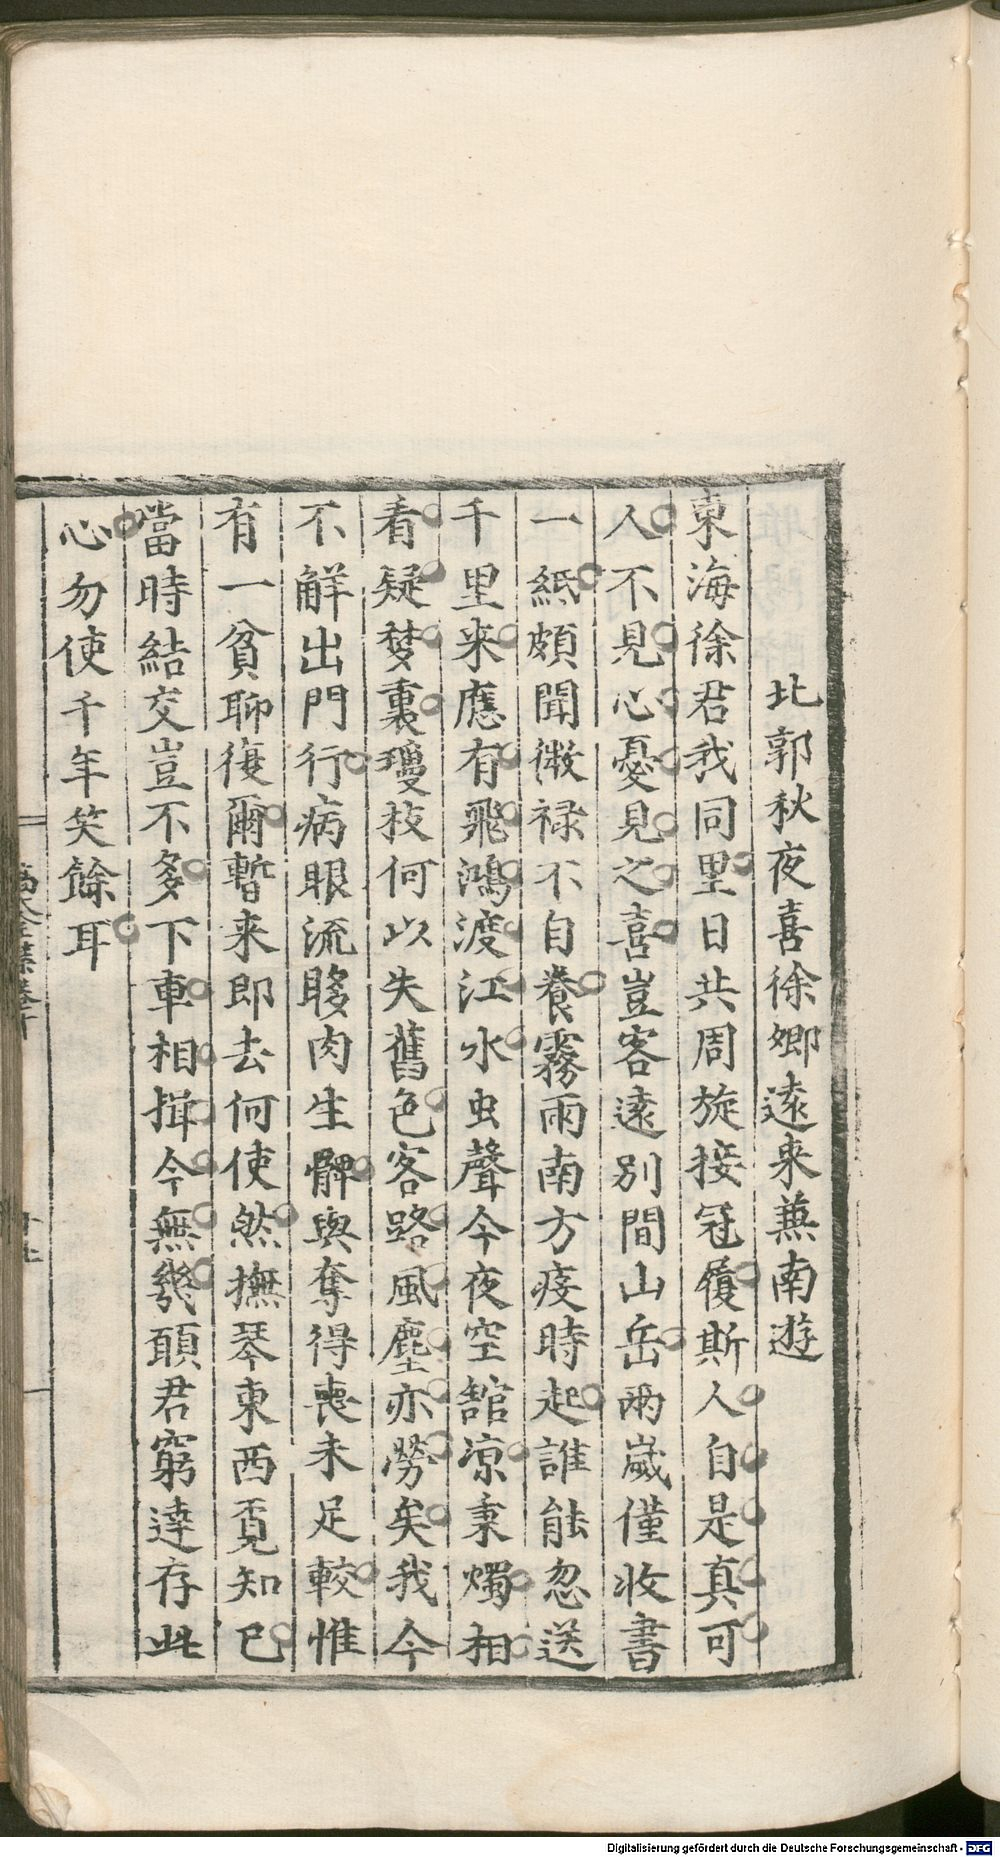 北郭秋夜喜徐卿逺来兼南遊
東海徐君我同里日共周旋接冠履斯人自是真可
人不見心憂見之喜豈客逺别間山岳兩歲僅收書
一紙頗聞微禄不自養霧雨南方疫時起誰能忽送
千里来應有飛鴻渡江水虫聲今夜空舘凉秉燭相
看疑夢裏瓊枝何以失舊色客路風塵亦勞矣我今
不觧出門行病眼流眵肉生髀與奪得喪未足較惟
有一貧聊復爾暫来即去何使然撫琴東西覓知已
當時結交豈不多下車相揖今無幾願君窮達存此
心勿使千年笑餘耳
Digitalisierung gefördert durch die Deutsche Forschungsgemeinschaft - DFG